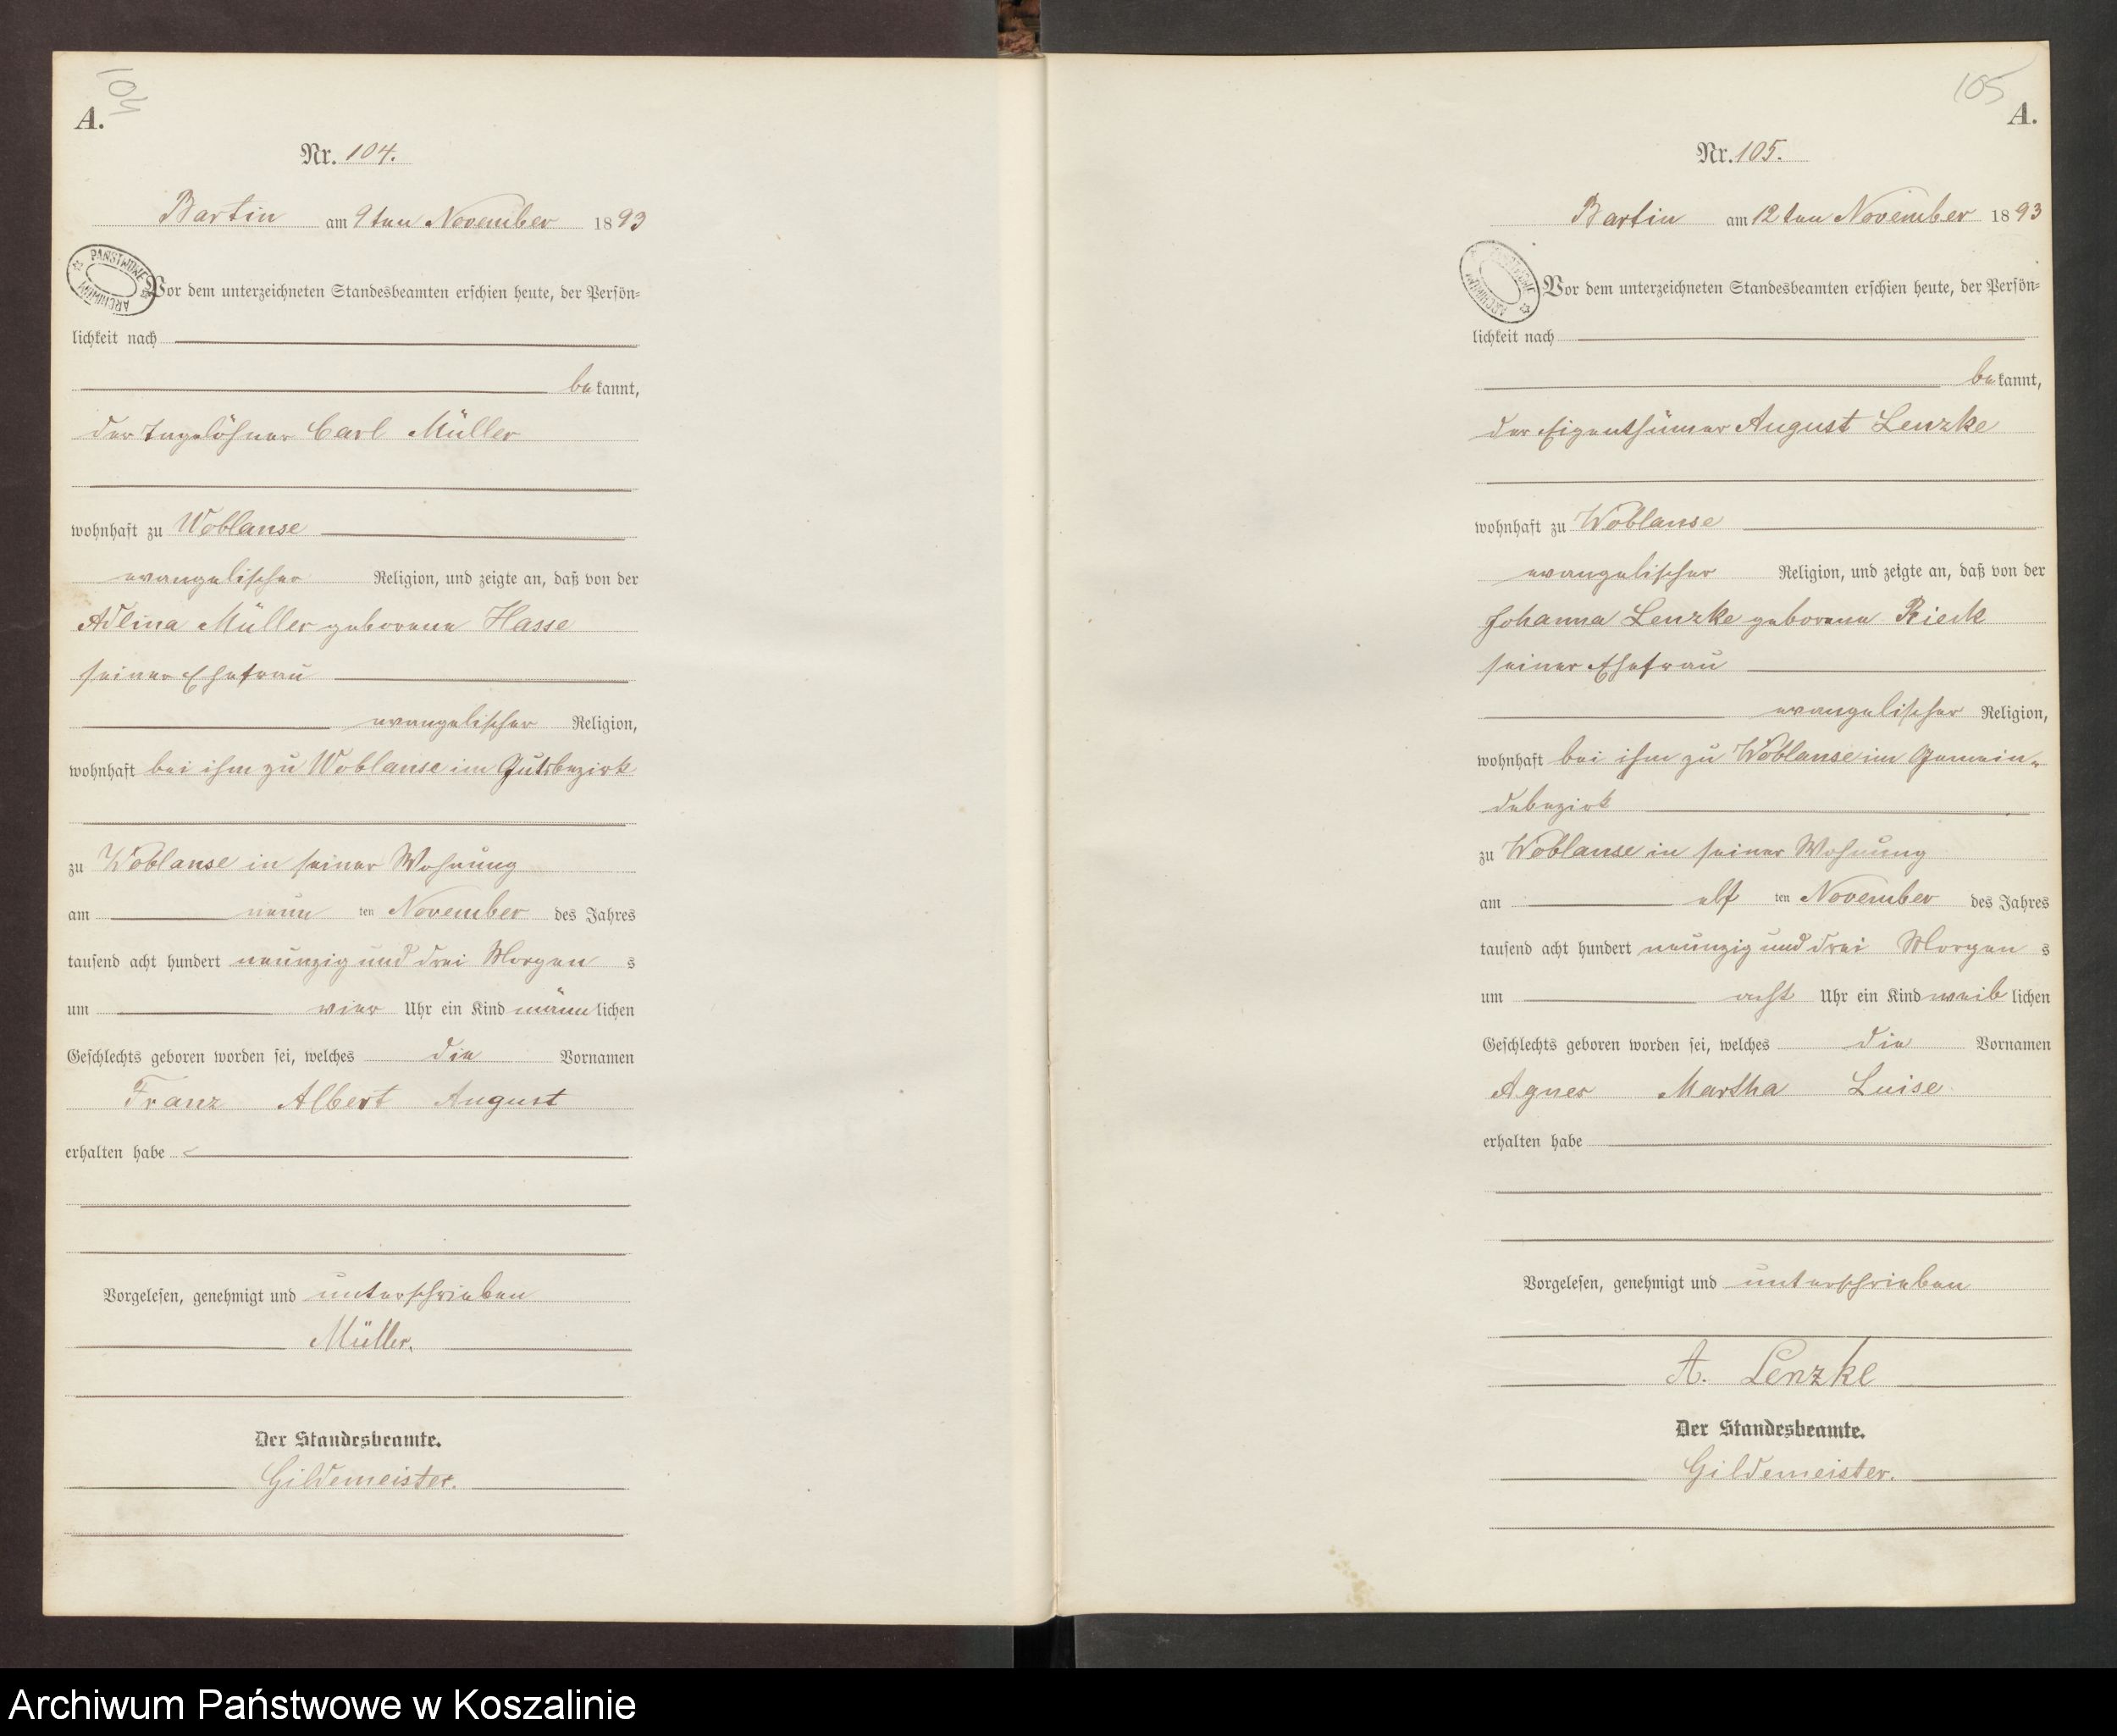 104
A.
Nr. 104.
Bartin am 9ten November 1893
PAŃSTWOWE ARCHIWUM
Vor dem unterzeichneten Standesbeamten erschien heute, der Persön=
lichkeit nach
bekannt,
der Tagelöhner Carl Müller
wohnhaft zu Woblanse
evangelischer Religion, und zeigte an, daß von der
Adlina Müller geborene Hasse
seiner Ehefrau
evangelischer Religion,
wohnhaft bei ihm zu Woblanse im Gutsbezirk
zu Woblanse in seiner Wohnung
am neun ten November des Jahres
tausend acht hundert neunzig und drei Morgen s
um vier Uhr ein Kind männlichen
Geschlechts geboren worden sei, welches die Vornamen
Franz Albert August
erhalten habe
Vorgelesen, genehmigt und unterschrieben
Müller.
Der Standesbeamte.
Gildemeister.
105
A.
Nr. 105.
Bartin am 12ten November 1893
PAŃSTWOWE ARCHIWUM
Vor dem unterzeichneten Standesbeamten erschien heute, der Persön=
lichkeit nach
bekannt,
der Eigenthümer August Lenzke
wohnhaft zu Woblanse
evangelischer Religion, und zeigte an, daß von der
Johanna Lenzke geborene Rieck
seiner Ehefrau
evangelischer Religion,
wohnhaft bei ihm zu Woblanse im Gemein=
debezirk
zu Woblanse in seiner Wohnung
am elf ten November des Jahres
tausend acht hundert neunzig und drei Morgen s
um acht Uhr ein Kind weiblichen
Geschlechts geboren worden sei, welches die Vornamen
Agnes Martha Luise
erhalten habe
Vorgelesen, genehmigt und unterschrieben
A. Lenzke
Der Standesbeamte.
Gildemeister.
Archiwum Państwowe w Koszalinie